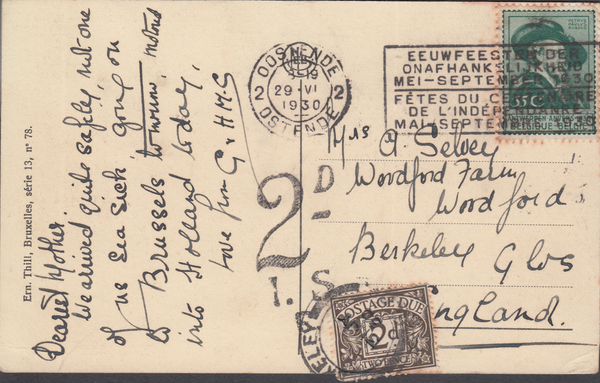 Dearest Mother.
We arrived quite safely, not one
of us sea sick, going on
to Brussels tomorrow, motored
into Holland today,
love from G & H
Ern. Thill, Bruxelles, série 13, n° 78.
OOSTENDE
2 29-VI 2
1930
OSTENDE
EEUWFEESTEN DER
ONAFHANKELIJKHEID
MEI-SEPTEMBER 1930
FÊTES DU CENTENAIRE
DE L'INDÉPENDANCE
MAI-SEPTEMBRE 1930
35C
BELGIQUE BELGIË
Mrs A. Selvey
Woodford Farm
Woodford
Berkeley Glos
England.
2D
I.S.
POSTAGE DUE
2d
TWO PENCE
KELEY